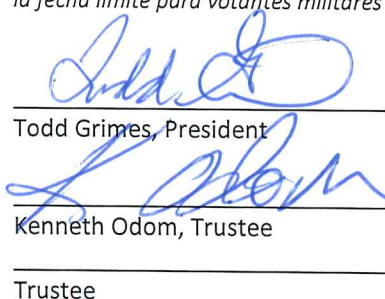 la fecha límite para votantes militares
Todd
Todd Grimes, President
K Odom
Kenneth Odom, Trustee
Trustee